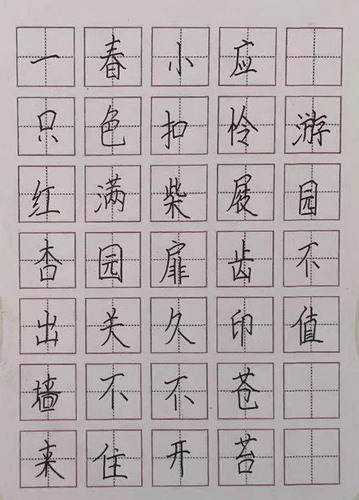 游园不值
应怜屐齿印苍苔
小扣柴扉久不开
春色满园关不住
一只红杏出墙来